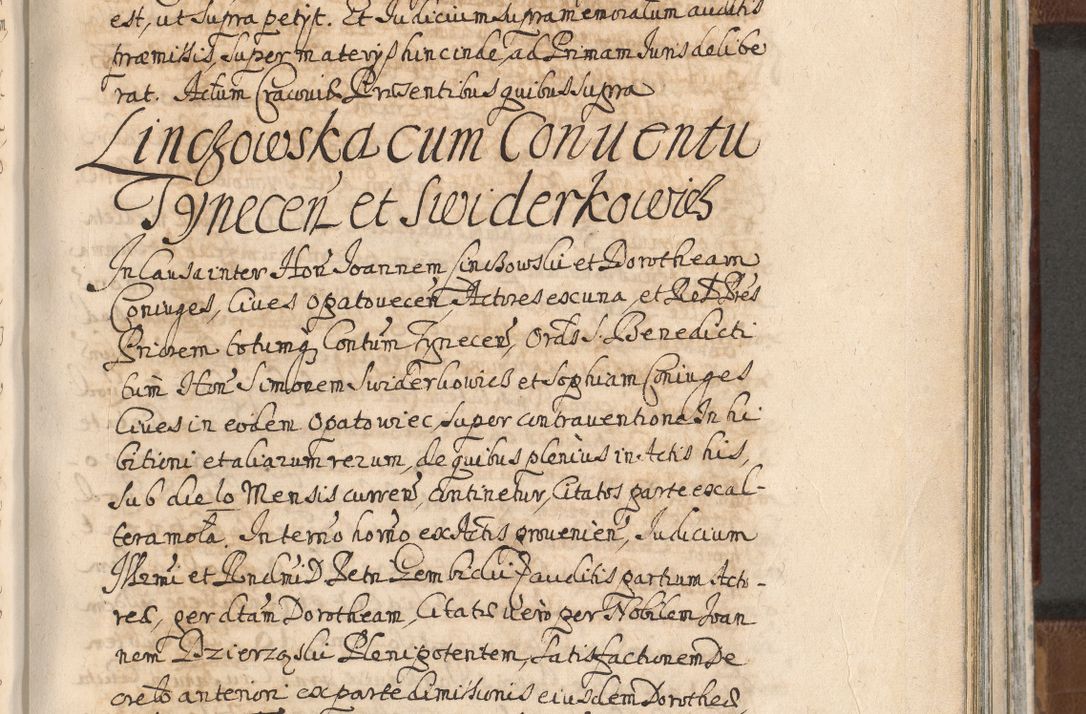 est, ut supra petijt. Et Judicium supra memoratum auditis
præmissis, super materijs hincinde, ad Primam Juris delibe
rat. Actum Cracoviæ Præsentibus quibus supra
Linczowska cum Conuentu
Tynecen et Swiderkowicz
In Causa inter Hon Joannem Linczowski et Dorotheam
Coniuges, Ciues Opatouecen, Actores ex una, et Rel
Priorem totumq Contum Tynecen, Ords S. Benedicti
tum Hon Simonem Swiderkowicz et Sophiam Coniuges
Ciues in eodem Opatowiec, super contrauentione In hi
bitioni et aliarum rerum, de quibus plenius in Actis his,
sub die Mensis curren, continetur, Citatos parte ex al-
tera mota. In termo horno ex Actis prouenien, Judicium
Illmi et Rndmi D Petri Gembicki auditis partium Acto-
res, per dtam Dorotheam, Citatis uero per Nobilem Joan
nem Dzierzski Plenipotentem, Satisfactionem De
creto anteriori ex parte dimissionis eiusdem Dorotheæ,